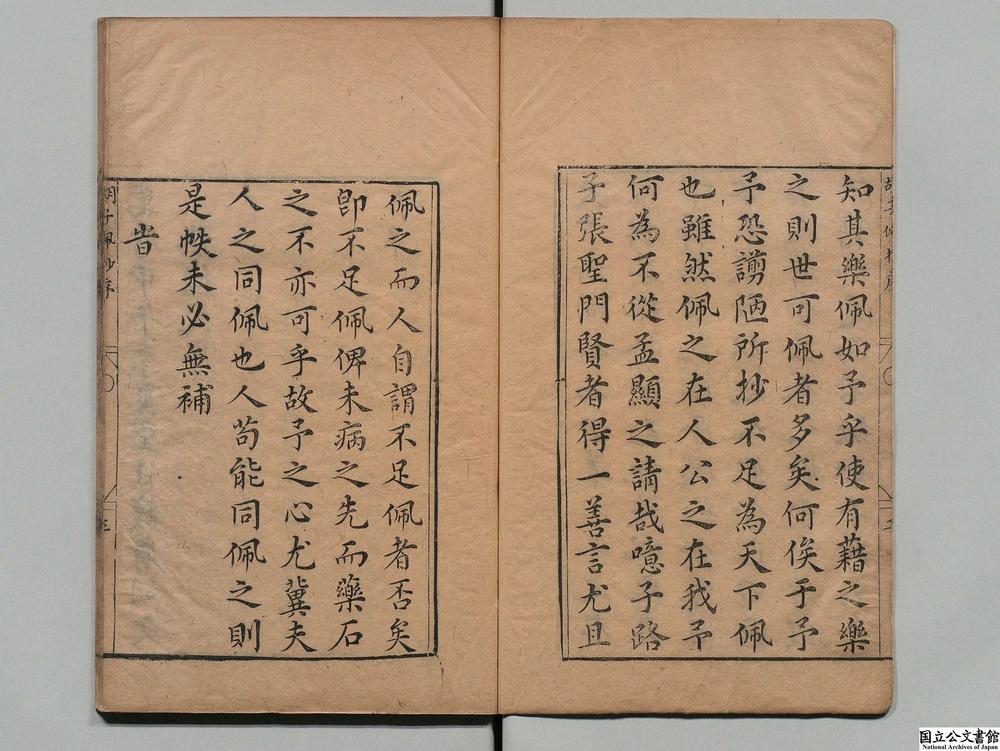 知其樂佩如予乎使有藉之樂
之則世可佩者多矣何俟于予
予恐謭陋所抄不足為天下佩
也雖然佩之在人公之在我予
何為不從孟顯之請哉噫子路
子張聖門賢者得一善言尤且
佩之而人自謂不足佩者否矣
卽不足佩俾未病之先而藥石
之不亦可乎故予之心尤冀夫
人之同佩也人苟能同佩之則
是帙未必無補
旹
胡子佩抄序
三
国立公文書館
National Archives of Japan